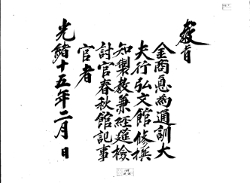 教旨
金商悳為通訓大
夫行弘文館修撰
知製教兼經筵檢
討官春秋館記事
官者
光緒十五年二月 日